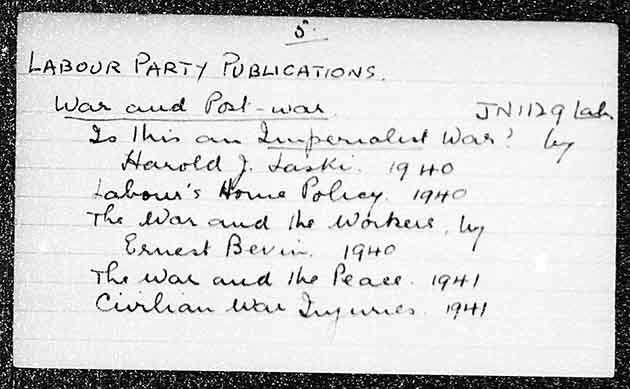 5.
LABOUR PARTY PUBLICATIONS.
War and Post-war. JN1129 Lab.
Is this an Imperialist War? by
Harold J. Laski. 1940
Labour's Home Policy. 1940
The War and the Workers, by
Ernest Bevin. 1940
The War and the Peace. 1941
Civilian War Injuries. 1941